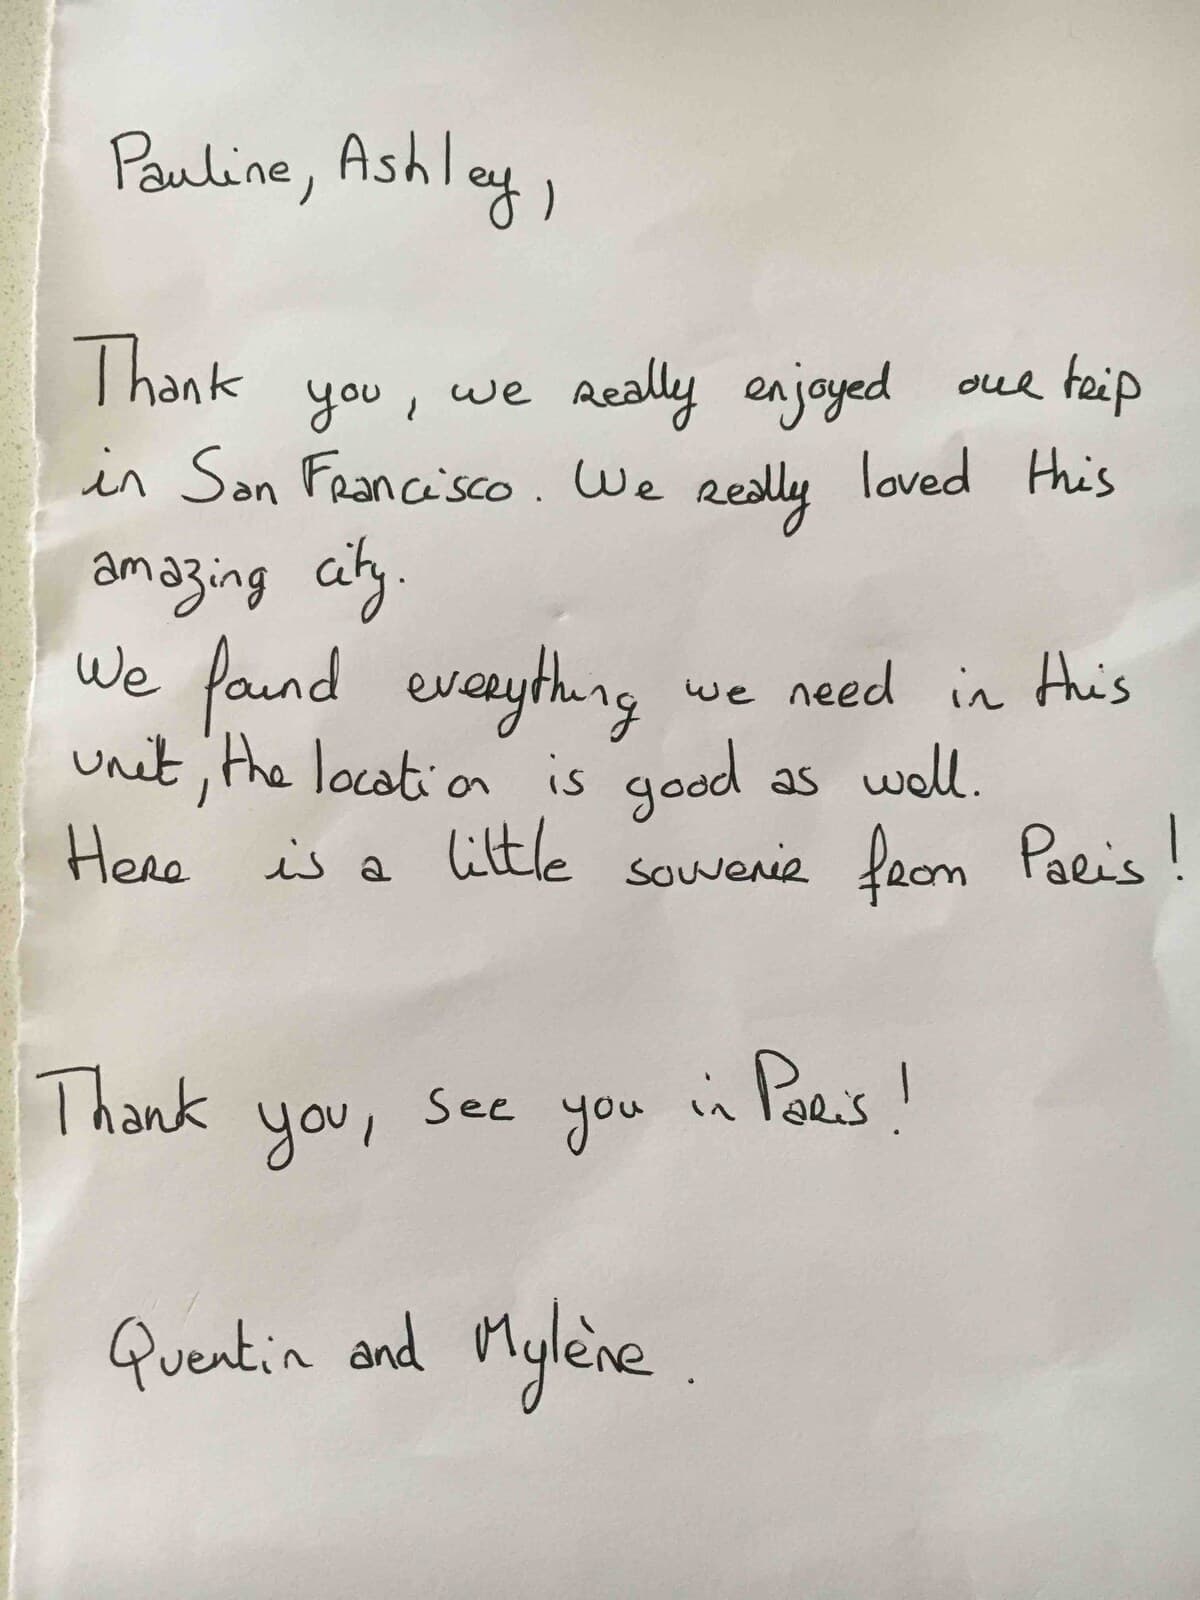 Pauline, Ashley,
Thank you, we really enjoyed our trip
in San Francisco. We really loved this
amazing city.
We found everything we need in this
unit, the location is good as well.
Here is a little souvenir from Paris!
Thank you, see you in Paris!
Quentin and Mylène.